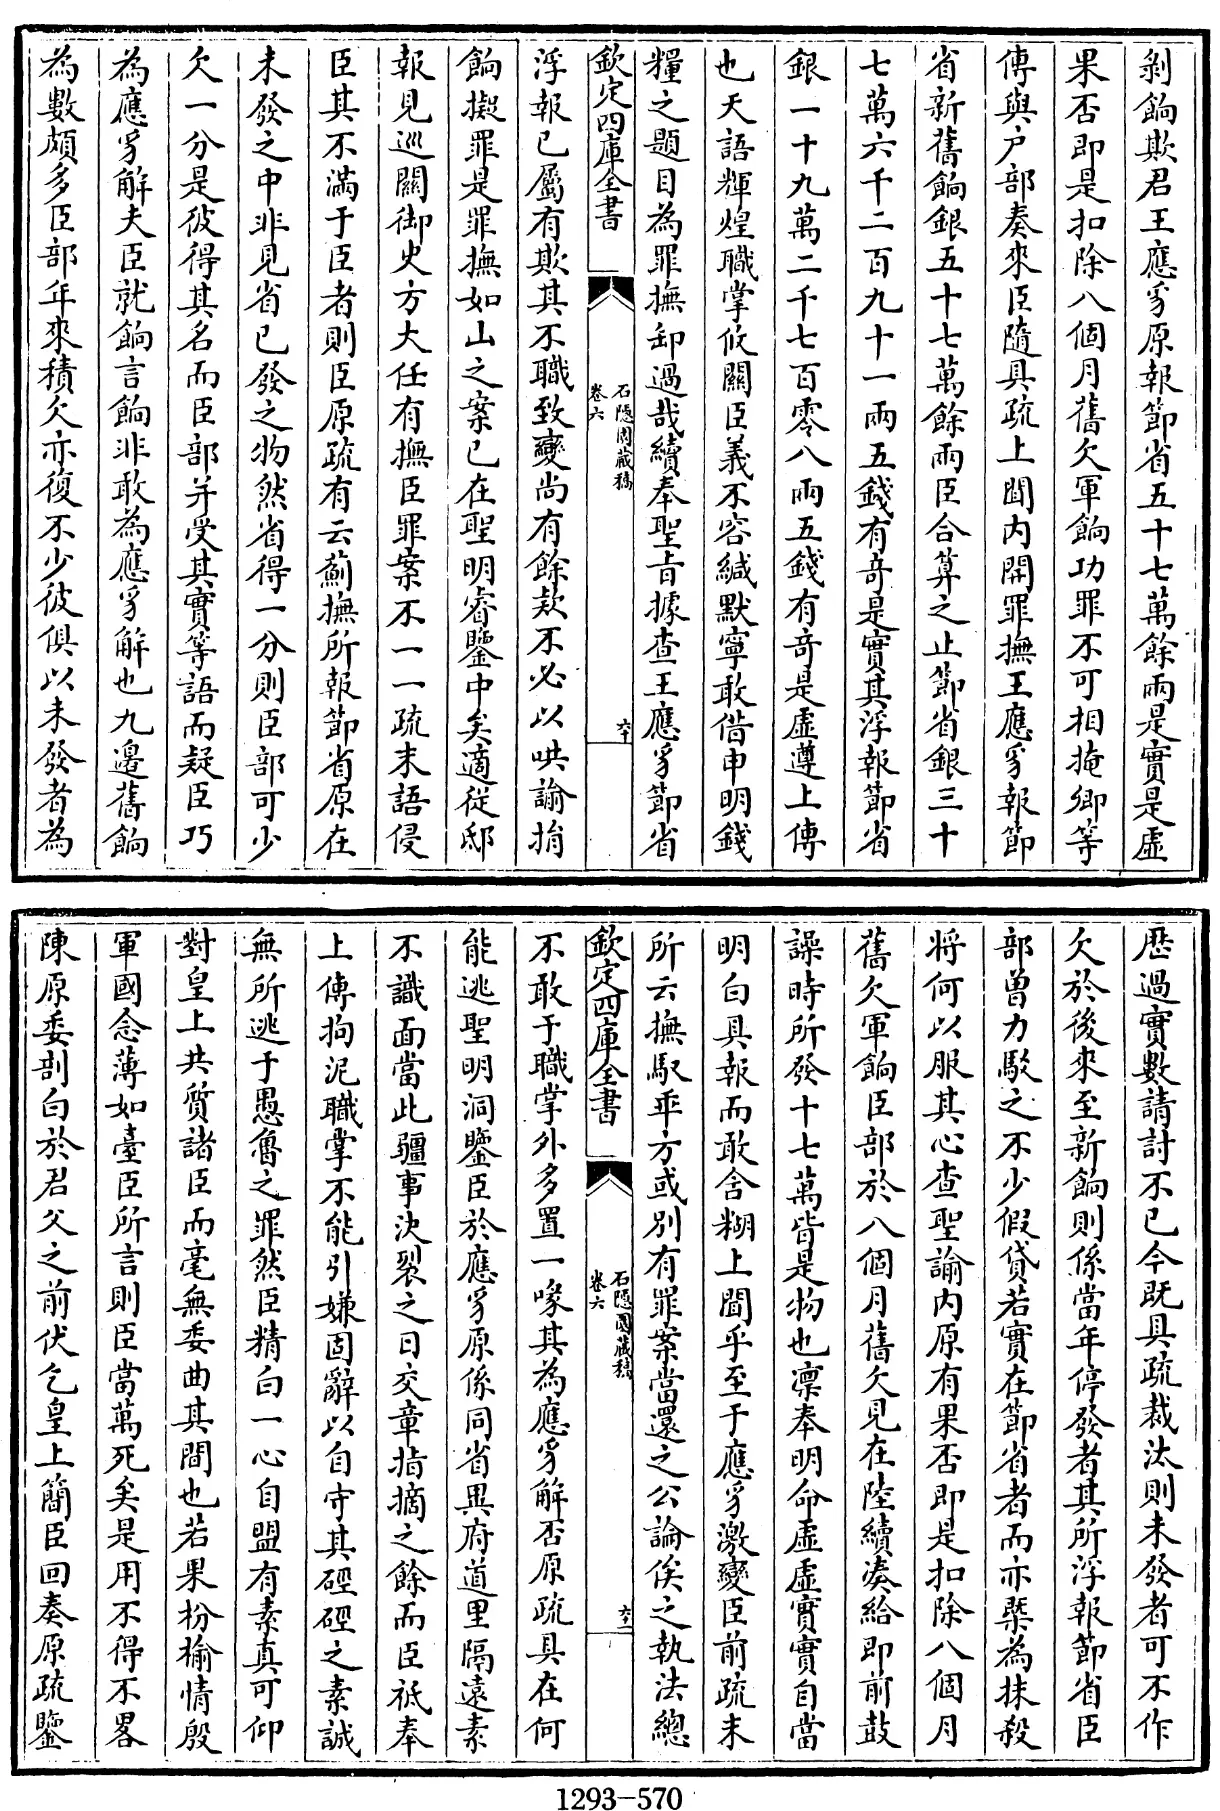 剝餉欺君王應豸原報節省五十七萬餘兩是實是虛
果否即是扣除八個月舊欠軍餉功罪不可相掩卿等
傳與户部奏來臣隨具疏上聞内開罪撫王應豸報節
省新舊餉銀五十七萬餘兩臣合算之止節省銀三十
七萬六千二百九十一兩五錢有奇是實其浮報節省
銀一十九萬二千七百零八兩五錢有奇是虛遵上傳
也天語輝煌職掌攸關臣義不容緘默寧敢借申明錢
糧之題目為罪撫卸過哉續奉聖旨據查王應豸節省
欽定四庫全書
石隱園藏稿
卷六
六十
浮報已屬有欺其不職致變尚有餘欵不必以哄諭捎
餉擬罪是罪撫如山之案已在聖明睿鑒中矣適從邸
報見巡關御史方大任有撫臣罪案不一一疏末語侵
臣其不滿于臣者則臣原疏有云薊撫所報節省原在
未發之中非見省已發之物然省得一分則臣部可少
欠一分是彼得其名而臣部并受其實等語而疑臣巧
為應豸解夫臣就餉言餉非敢為應豸解也九邊舊餉
為數頗多臣部年來積欠亦復不少彼俱以未發者為
歴過實數請討不已今既具疏裁汰則未發者可不作
欠於後來至新餉則係當年停發者其所浮報節省臣
部曾力駁之不少假貸若實在節省者而亦槩為抹殺
將何以服其心查聖諭内原有果否即是扣除八個月
舊欠軍餉臣部於八個月舊欠見在陸續凑給即前鼓
譟時所發十七萬皆是物也凛奉明命虛虛實實自當
明白具報而敢含糊上聞乎至于應豸激變臣前疏末
所云撫馭乖方或别有罪案當還之公論俟之執法總
欽定四庫全書
石隱園藏稿
卷六
六十一
不敢于職掌外多置一喙其為應豸解否原疏具在何
能逃聖明洞鑒臣於應豸原係同省異府道里隔遠素
不識面當此疆事決裂之日交章指摘之餘而臣祗奉
上傳拘泥職掌不能引嫌固辭以自守其硜硜之素誠
無所逃于愚魯之罪然臣精白一心自盟有素真可仰
對皇上共質諸臣而毫無委曲其間也若果枌榆情殷
軍國念薄如臺臣所言則臣當萬死矣是用不得不畧
陳原委剖白於君父之前伏乞皇上簡臣回奏原疏鑒
1293-570